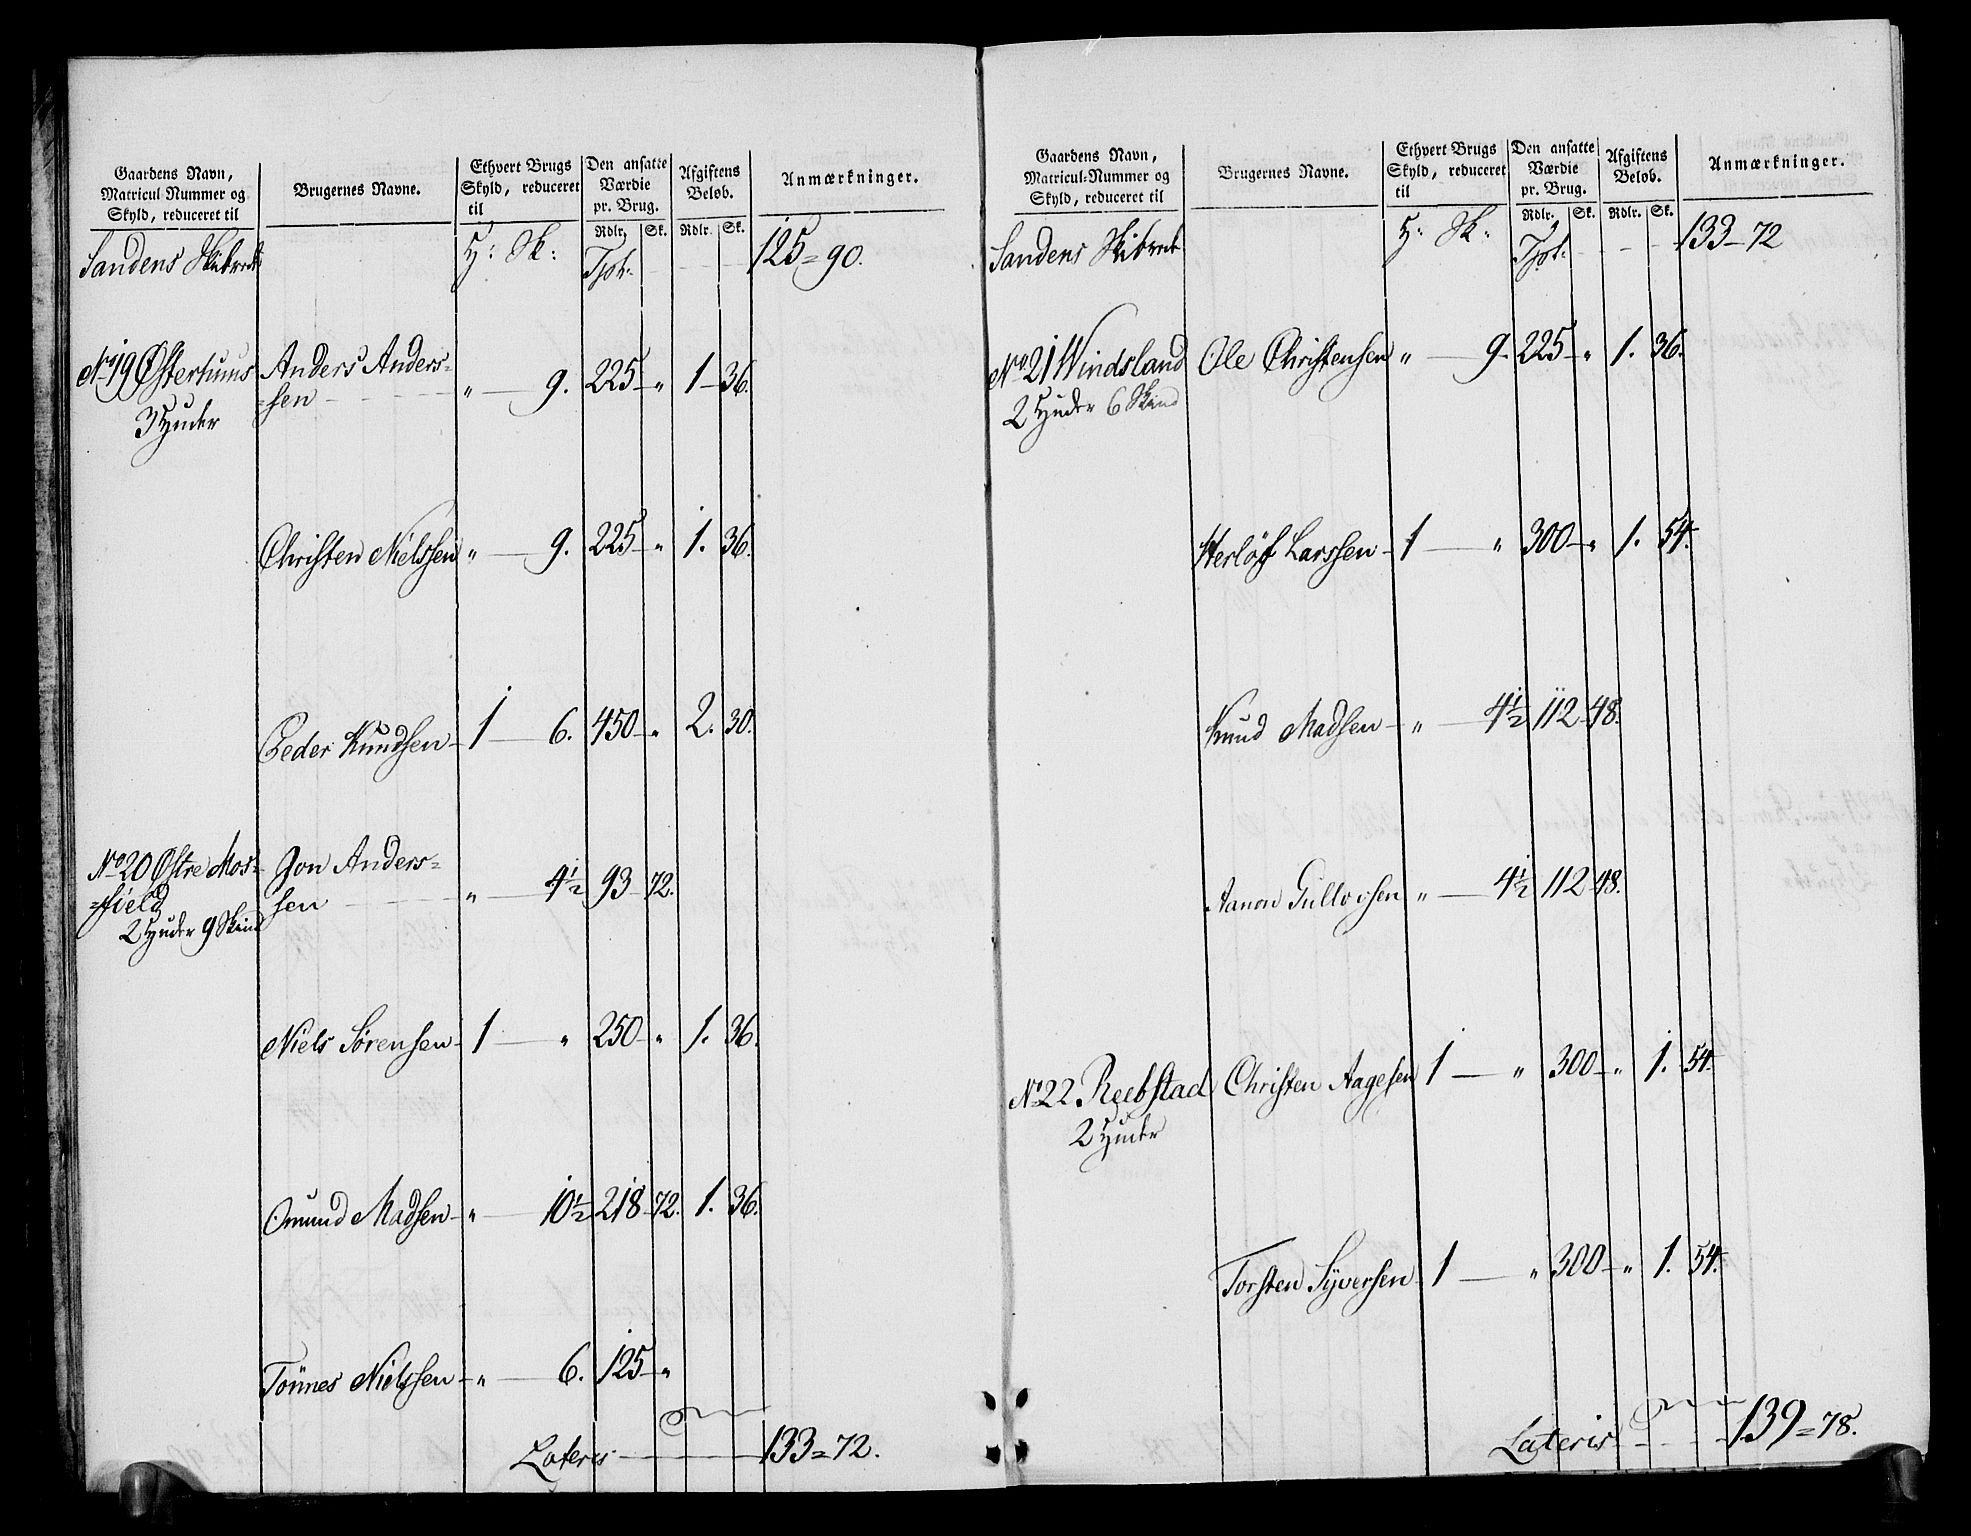 Gaardens Navn, Matricul-Nummer og Skyld, reduceret til | Brugernes Navne. | Ethvert Brugs Skyld, reduceret til | Den ansatte Værdie pr. Brug. Rdlr. Sk. | Afgiftens Beløb. Rdlr. Sk. | Anmærkninger.
Sandens Skibrede H: Sk: Tpt. 125 = 90.
No 19 Østerhuus Anders Anders=
=sen „ 9. 225 „ 1 36.
3 Huder
Christen Nielssen „ 9. 225 „ 1. 36.
Peder Knudsen 1 6. 450 „ 2. 30.
No 20 Østre Mos= Jon Anders=
=field sen „ 4½ 93 72.
2 Huder 9 Skind
Niels Sørensen 1 „ 250 „ 1. 36.
Omund Madsen „ 10½ 218 72. 1. 36.
Tönnes Nielssen „ 6. 125 „
Lateris 133 = 72.
Gaardens Navn, Matricul-Nummer og Skyld, reduceret til | Brugernes Navne. | Ethvert Brugs Skyld, reduceret til | Den ansatte Værdie pr. Brug. Rdlr. Sk. | Afgiftens Beløb. Rdlr. Sk. | Anmærkninger.
Sandens Skibrede H: Sk: Tpt. 133 72
No 21 Windsland Ole Christensen „ 9. 225 „ 1. 36.
2 Huder 6 Skind
Herlöf Larssen 1 „ 300 „ 1. 54.
Knud Madsen „ 4½ 112 48.
Aanon Gullovsen „ 4½ 112 48.
No 22. Reebstad Christen Aagesen 1 „ 300 „ 1. 54.
2 Huder
Torsten Syversen 1 „ 300 „ 1. 54.
Lateris 139 = 78.